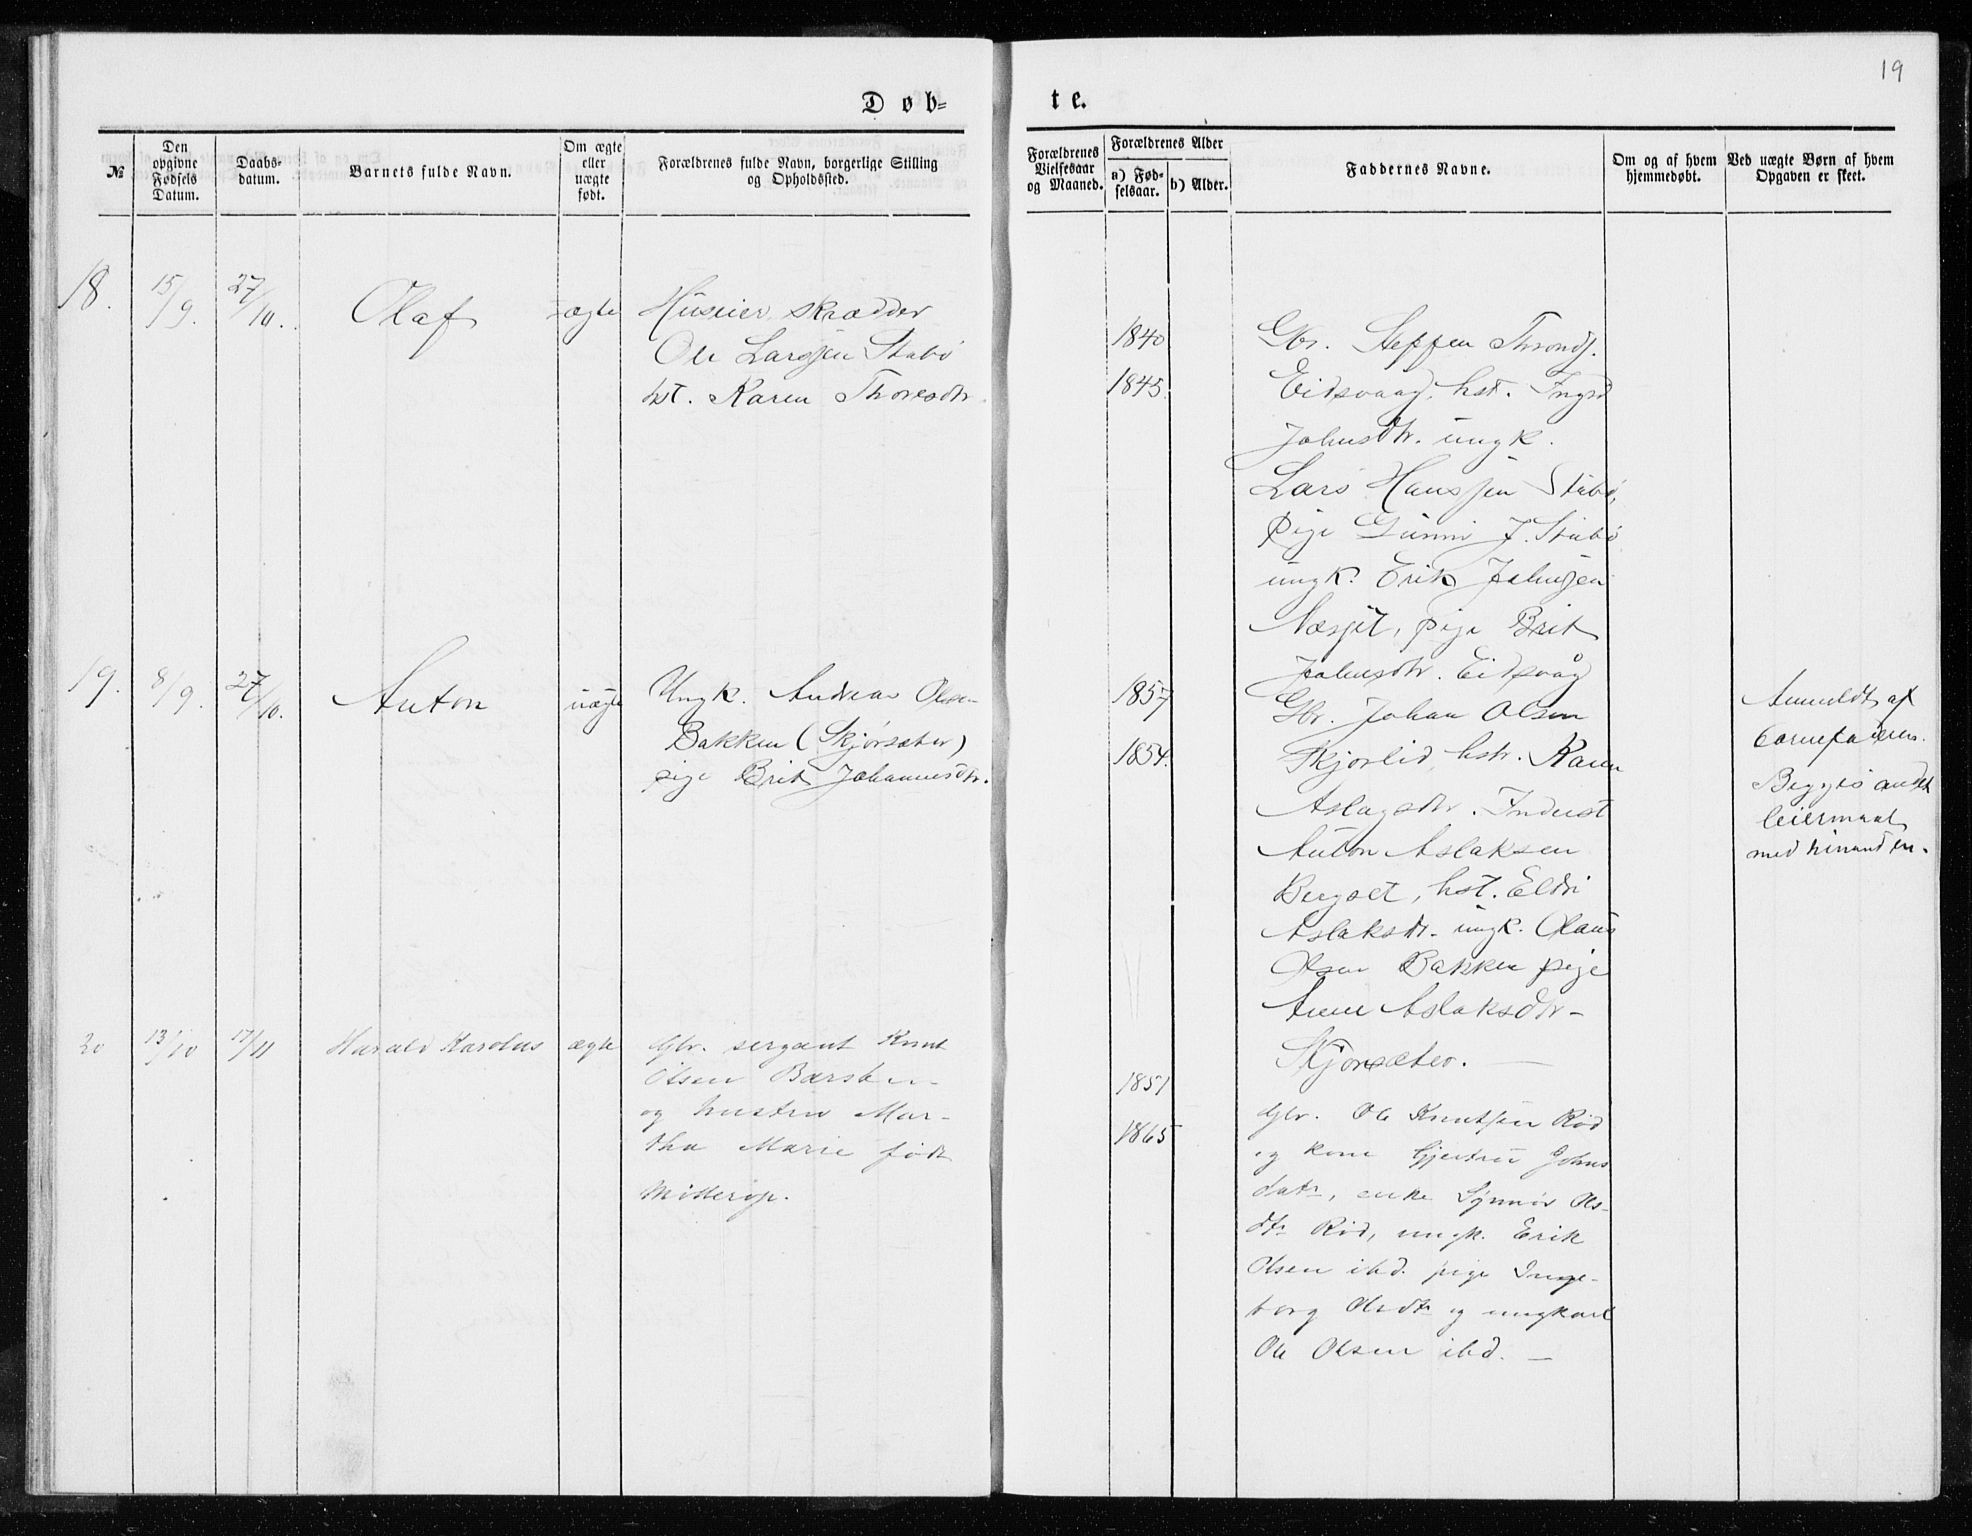 19
Døb-
te.
№
Den opgivne Fødsels Datum.
Daabs-datum.
Barnets fulde Navn.
Om ægte eller uægte født.
Forældrenes fulde Navn, borgerlige Stilling og Opholdssted.
Forældrenes Vielsesaar og Maaned.
Forældrenes Alder
a) Fød-selsaar.
b) Alder.
Faddernes Navne.
Om og af hvem hjemmedøbt.
Ved uægte Børn af hvem Opgaven er skeet.
18.
15/9.
27/10.
Olaf
ægte
Huseier, skrædder
Ole Larssen Stubø
hst. Karen Thoresdtr.
1840
1845.
Gbr. Steffen Thronds.
Eidsvaag, hst. Ingrd
Johnsdtr. ungk.
Lars Hanssen Stubø,
pige Gunni J. Stubø
ungk. Erik Johnsen
Næsjet, pige Brit
Johnsdtr. Eidsvåg
19.
8/9.
27/10.
Anton
uægte
Ungk. Andreas Olsen
Bakken (Skjørsæter)
pige Brit Johannesdtr.
1857
1854.
Gbr. Johan Olsen
Skjørlid, hstr. Karen
Aslagsdtr. Inderst
Anton Aslaksen
Bergset, hst. Eldri
Aslaksdtr. ungk. Olaus
Olsen Bakken pige
Anne Aslaksdtr-
Skjørsæter. —
Anmeldt af
barnefaderen.
Begges andet
leiermaal
med hinanden.
20
13/10
17/11
Harald Karolus
ægte
Gbr. sergeant Knut
Olsen Bærsten
og hustru Mar-
tha Marie født
Mitterøp.
1851
1865
Gbr. Ole Knutsen Rød
og kone Gjertru Johns
datr, enke Synnøv Ols-
dtr Rød, ungk. Erik
Olsen ibd. pige Inge-
borg Olsdtr og ungkarl
Ole Olsen ibd. —